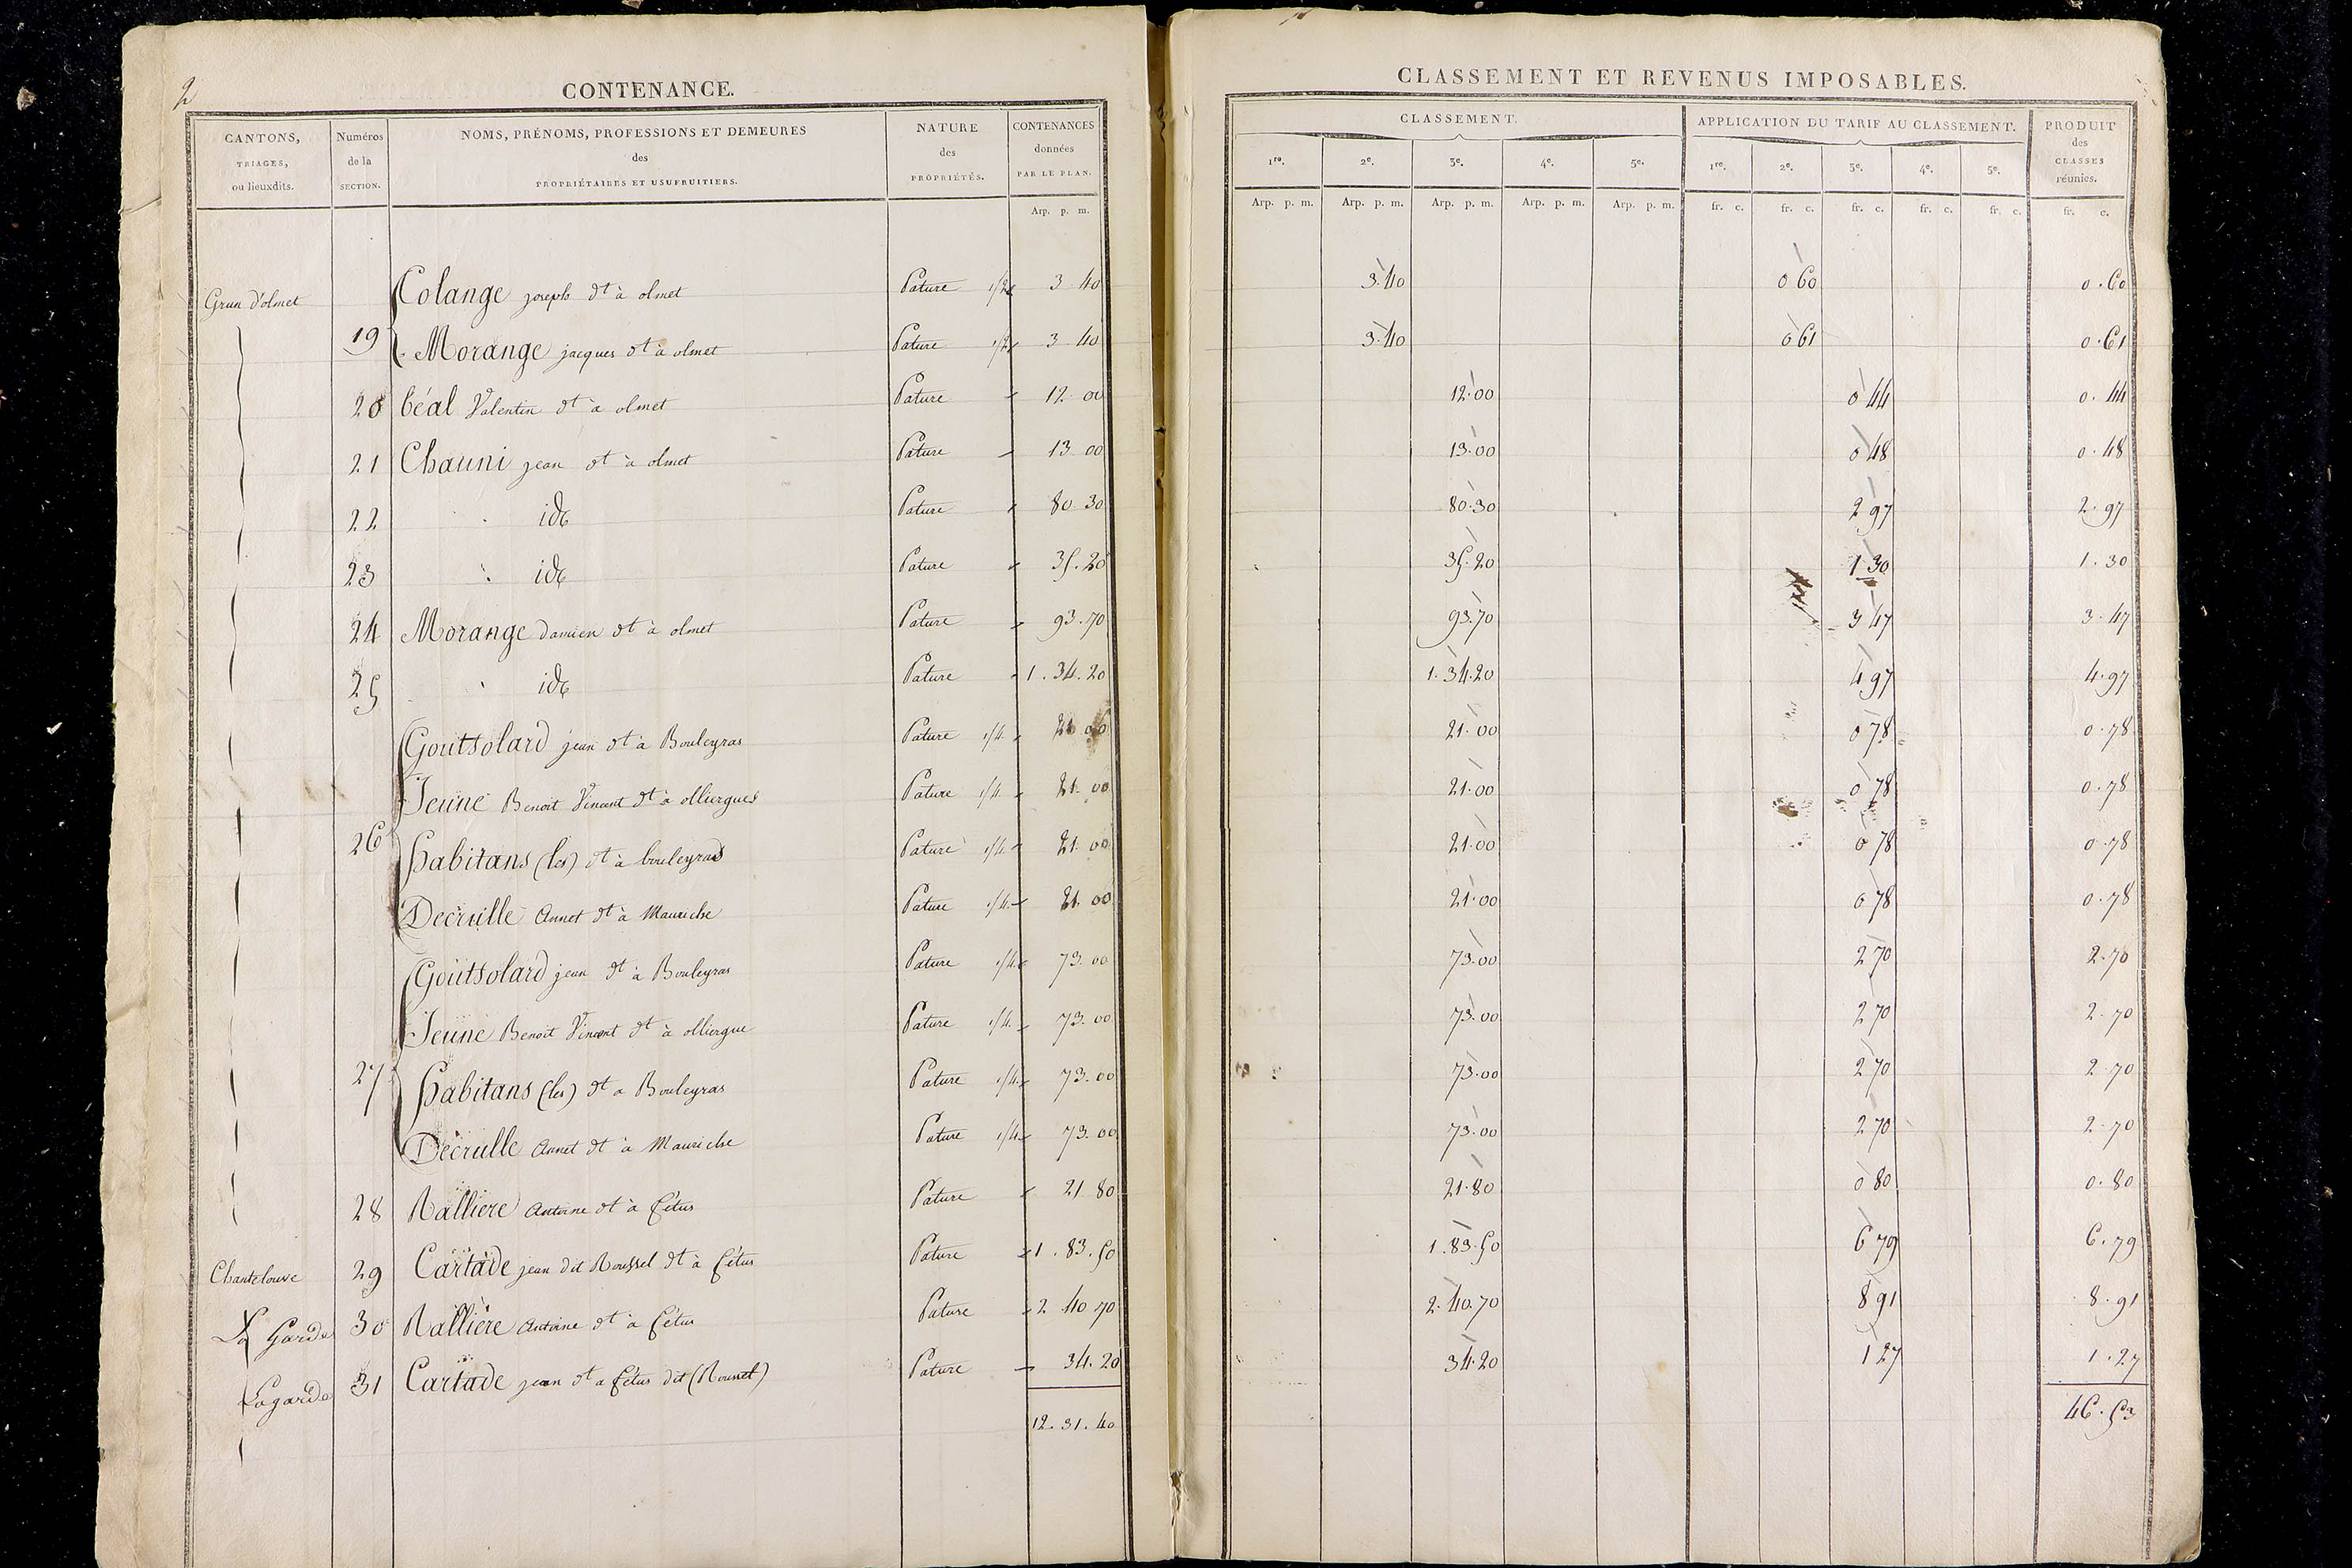 2
CONTENANCE.
CANTONS, TRIAGES, ou lieuxdits.
Numéros de la SECTION.
NOMS, PRÉNOMS, PROFESSIONS ET DEMEURES des PROPRIÉTAIRES ET USUFRUITIERS.
NATURE des PROPRIÉTÉS.
CONTENANCES données PAR LE PLAN.
Arp. p. m.
Grun d'olmet Colange joseph dt à olmet Pature 1/2 3 40
19 Morange jacques dt à olmet Pature 1/2 3 40
20 béal Valentin dt à olmet Pature 12 00
21 Chauni jean dt à olmet Pature 13 00
22 id Pature 80 30
23 id Pature 35.20
24 Morange damien dt à olmet Pature 93.70
25 id Pature 1.34.20
Goutsolard jean dt à Bouleyras Pature 1/4 21 00
Jeune Benoit Vincent dt à olliergues Pature 1/4 21 00
26 habitans (les) dt à bouleyras Pature 1/4 21 00
Decrulle Annet dt à Mauriche Pature 1/4 21 00
Goutsolard jean dt à Bouleyras Pature 1/4 73.00
Jeune Benoit Vincent dt à olliergue Pature 1/4 73.00
27 habitans (les) dt a Bouleyras Pature 1/4 73.00
Decrulle Annet dt à Mauriche Pature 1/4 73.00
28 Rallière Antoine dt à Cétus Pature 21 80
Chantelouve 29 Cartade jean dit Roussel dt à Cétus Pature 1.83.50
La Garde 30 Rallière Antoine dt à Cétus Pature 2 40 70
Lagarde 31 Cartade jean dt a Cétus dit (Roussel) Pature 34.20
12.31.40
CLASSEMENT ET REVENUS IMPOSABLES.
CLASSEMENT.
APPLICATION DU TARIF AU CLASSEMENT.
PRODUIT des CLASSES réunies.
1re. 2e. 3e. 4e. 5e. 1re. 2e. 3e. 4e. 5e.
Arp. p. m. Arp. p. m. Arp. p. m. Arp. p. m. Arp. p. m. fr. c. fr. c. fr. c. fr. c. fr. c. fr. c.
3.40 0 60 0.60
3.40 0 61 0.61
12.00 0 44 0.44
13.00 0 48 0.48
80.30 2 97 2.97
35.20 1 30 1.30
93.70 3 47 3.47
1.34.20 4 97 4.97
21.00 0 78 0.78
21.00 0 78 0.78
21.00 0 78 0.78
21.00 0 78 0.78
73.00 2 70 2.70
73.00 2 70 2.70
73.00 2 70 2.70
73.00 2 70 2.70
21.80 0 80 0.80
1.83.50 6 79 6.79
2.40.70 8 91 8.91
34.20 1 27 1.27
46.53